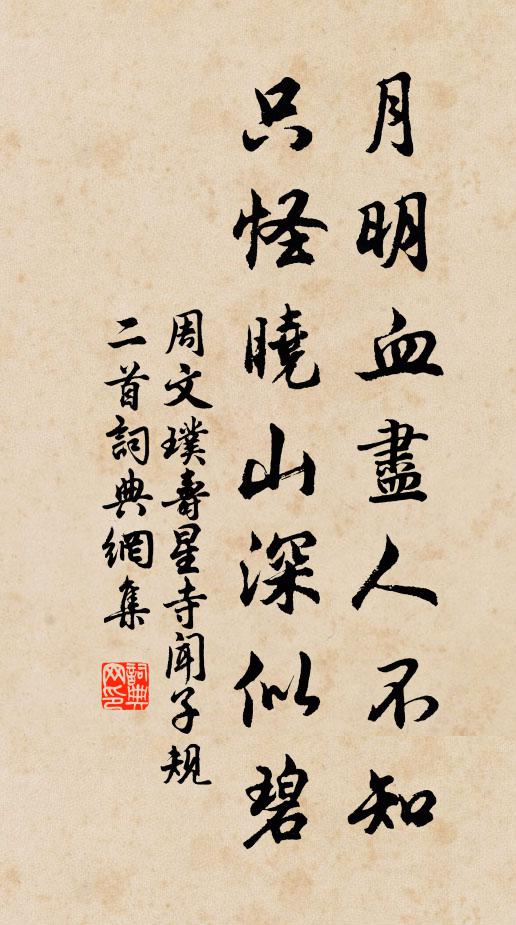 月明血盡人不知
只怪曉山深似碧
周文璞壽星寺聞子規
二首詞典網集
詞典網印